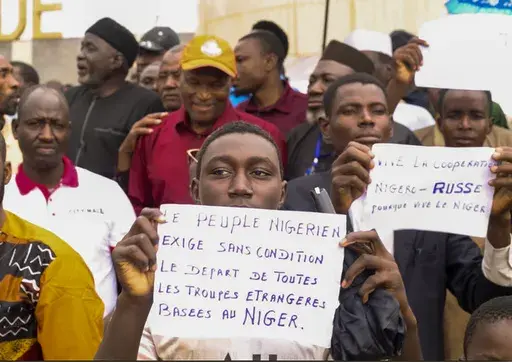 LE PEUPLE NIGERIEN
EXIGE SANS CONDITION
LE DEPART DE TOUTES
LES TROUPES ETRANGERES
BASEES AU NIGER.
VIVE LA COOPERATION
NIGERO-RUSSE
POURQUE VIVE LE NIGER
DE